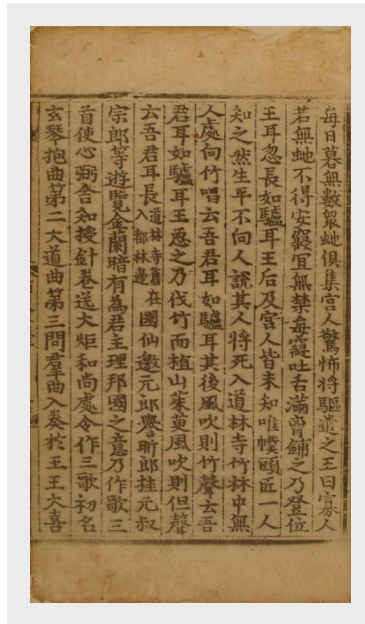 每日暮無數衆虵俱集宮人驚怖將驅遣之王曰寡人
若無虵不得安寢宜無禁每寢吐舌滿胷鋪之乃登位
王耳忽長如驢耳王后及宮人皆未知唯幞頭匠一人
知之然生平不向人說其人將死入道林寺竹林中無
人處向竹唱云吾君耳如驢耳其後風吹則竹聲云吾
君耳如驢耳王惡之乃伐竹而植山茱萸風吹則但聲
云吾君耳長道林寺舊在入都林邊國仙邀元郎譽昕郎桂元叔
宗郎等遊覽金蘭暗有為君主理邦國之意乃作歌三
首使心弼舍知授針卷送大炬和尚處令作三歌初名
玄琴抱曲第二大道曲第三問羣曲入奏於王王大喜